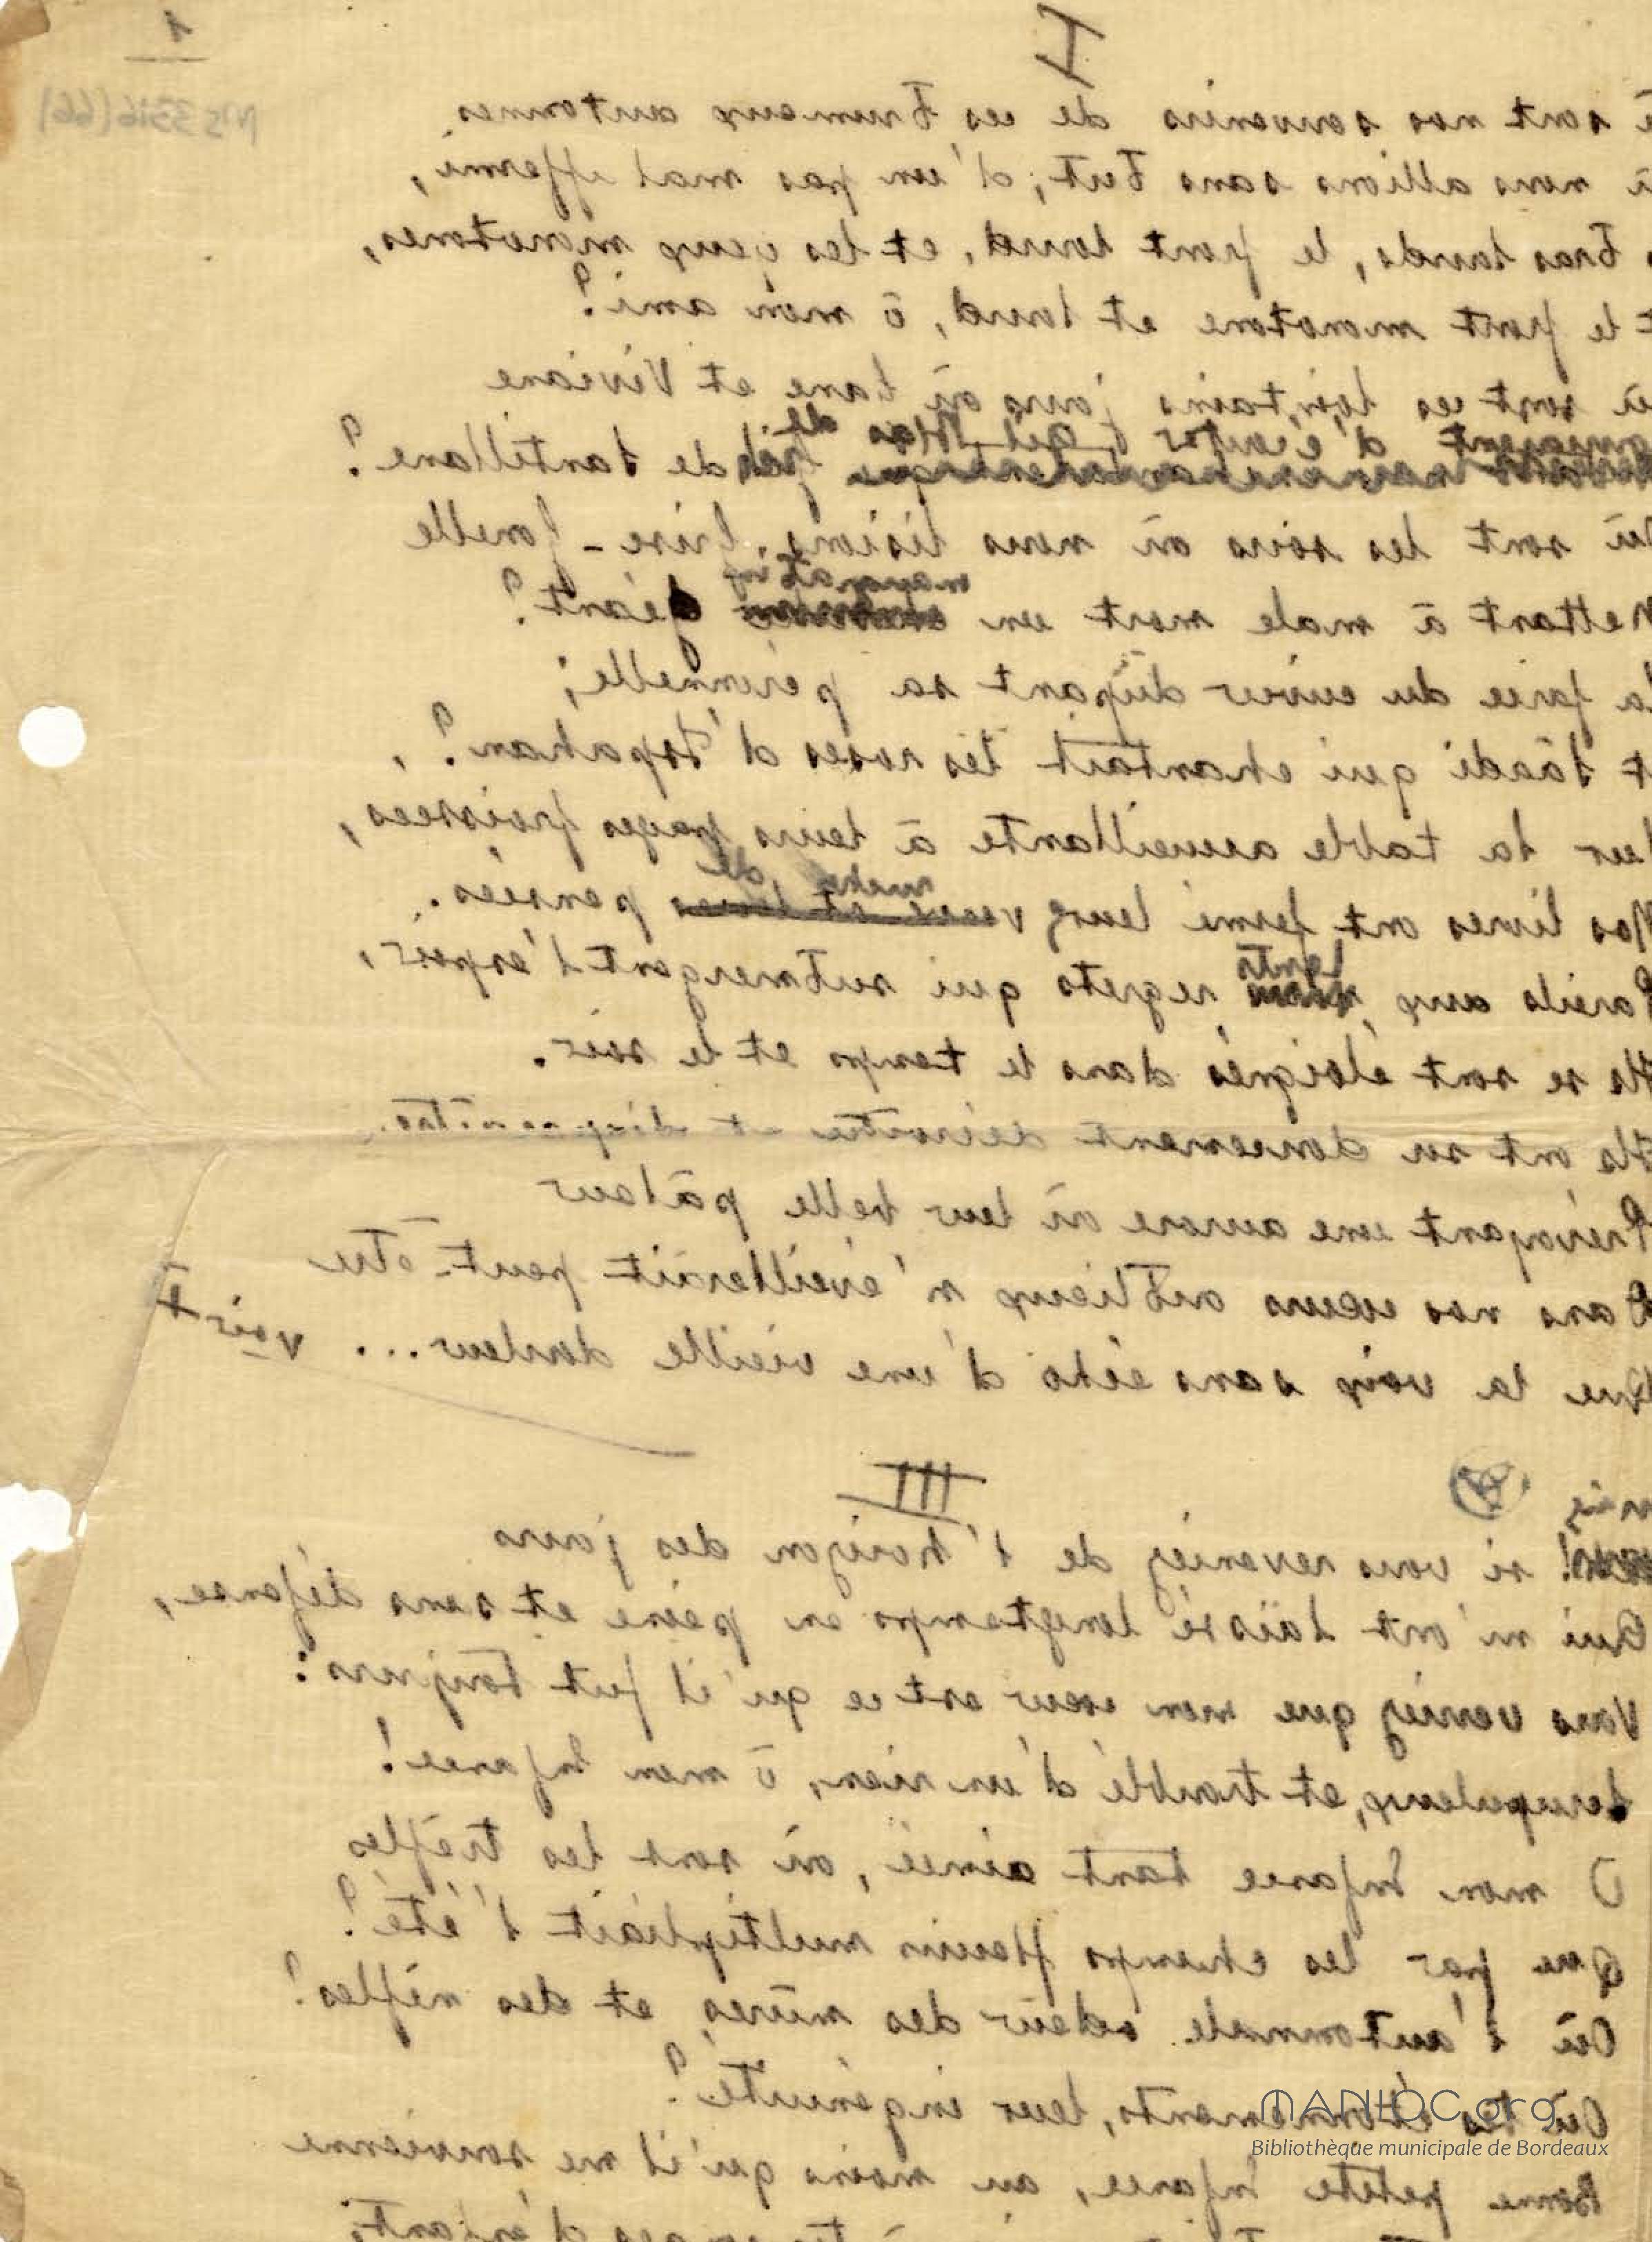 1
MS 3316 (66)
I
sont nos souvenirs de ces brumeux automnes
nous allions sans but, d'un pas mal affermi,
bras lourds, le front lourd, et les yeux monotones,
le front monotone et lourd, ô mon ami?
sont ces lointains jours où Lane et Viviane
d'écouter Gil Blas de Santillane?
Où sont les soirs où nous lisions. Brise-
Mettant à male mort un géant?
La farce du cuvier dupant sa péronnelle;
Et Sâadi qui chantait les roses d'Ispahan?
Sur la table accueillante à leurs pages froissées,
Nos livres ont fermé leurs de pensées.
Pareils aux lents regrets qui submergent l'espoir,
Ils se sont éloignés dans le temps et le soir.
Ils ont su doucement décroître et disparaître,
Prévoyant une aurore où leur belle pâleur
Dans nos cœurs oublieux n'éveillerait peut-être
Que la voix sans écho d'une vieille douleur... voir
III
si vous reveniez de l'horizon des jours
Qui m'ont laissé longtemps en peine et sans défense,
Vous verriez que mon cœur est ce qu'il fut toujours:
Scrupuleux, et troublé d'un rien, ô mon Enfance!
O mon Enfance tant aimée, où sont les trèfles
Que par les champs fleuris multipliait l'été?
Où l'automnale odeur des mûres, et des nèfles?
Où tes étonnements, leur ingénuité?
Bonne petite Enfance, au moins qu'il me souvienne
d'enfant,
MANIOC.org
Bibliothèque municipale de Bordeaux